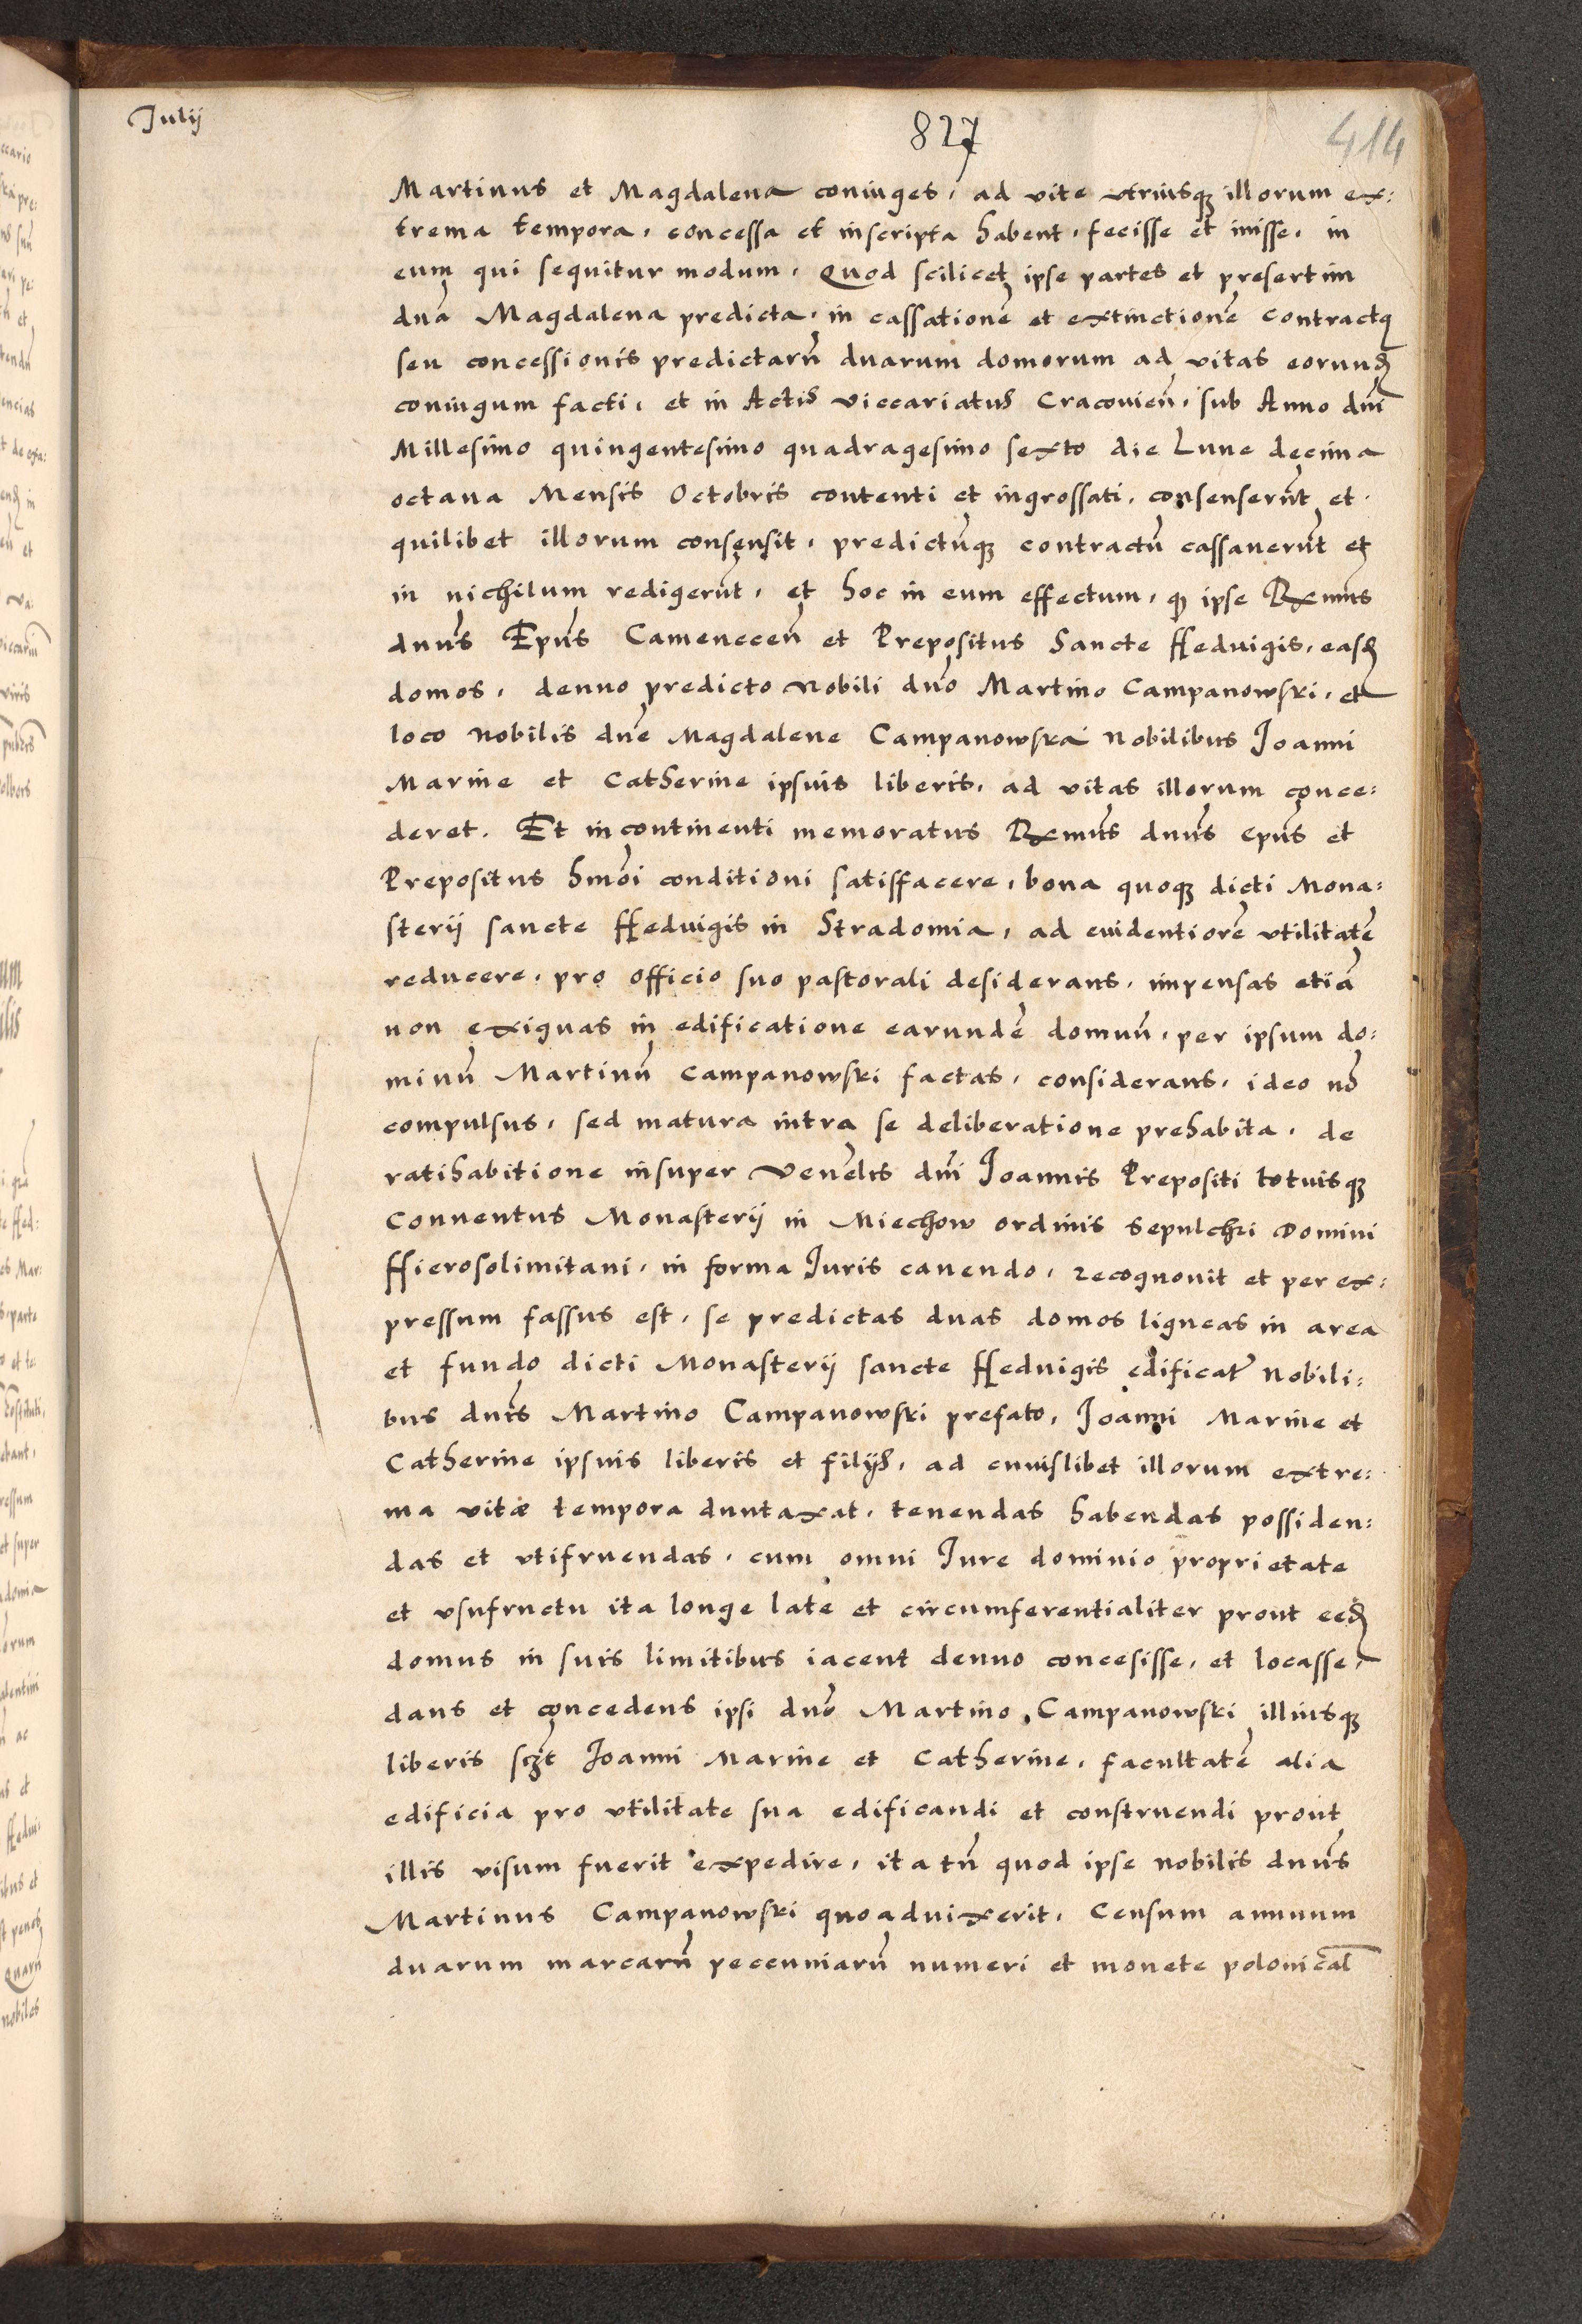 Julij
827
414
Martinus et Magdalena coniuges, ad vite vtriusq illorum ex:
trema tempora, concessa et inscripta habent, fecisse et inisse, in
eum qui sequitur modum. Quod scilicet ipse partes et presertim
dna Magdalena predicta, in cassatione et extinctione contractq
seu concessionis predictaru duarum domorum ad vitas eorund
coniugum facti, et in Actis viccariatus Cracouien, sub Anno dni
Millesimo quingentesimo quadragesimo sexto die Lune decima
octaua Mensis Octobris contenti et ingrossati, consenserut et
quilibet illorum consensit, predictuq contractu cassauerut et
in nichilum redigerut, et hoc in eum effectum, q ipse Rxmus
dnus Epus Camenecen et Prepositus Sancte Heduigis, easd
domos, denuo predicto Nobili dno Martino Campanowski, et
loco Nobilis dne Magdalene Campanowska Nobilibus Joanni
Marine et Catherine ipsuis liberis, ad vitas illorum conce:
deret. Et incontinenti memoratus Rxmus dnus Epus et
Prepositus hmoi conditioni satisfacere, bona quoq dicti Mona:
sterij sancte Heduigis in Stradomia, ad euidentiore vtilitate
reducere, pro officio suo pastorali desiderans, impensas etia
non exiguas in edificatione earunde domuu, per ipsum do:
minu Martinu Campanowski factas, considerans, ideo no
compulsus, sed matura intra se deliberatione prehabita, de
ratihabitione insuper Venelis dni Joannis Prepositi totuisq
Conuentus Monasterij in Miechow ordinis Sepulchri Domini
Hierosolimitani, in forma Juris cauendo, recognouit et per ex:
pressum fassus est, se predictas duas domos ligneas in area
et fundo dicti Monasterij sancte Heduigis edificat Nobili:
bus dnis Martino Campanowski prefato, Joanni Marine et
Catherine ipsuis liberis et filijs, ad cuuislibet illorum extre:
ma vitæ tempora duntaxat, tenendas habendas possiden:
das et vtifruendas, cum omni Jure dominio proprietate
et vsufructu ita longe late et circumferentialiter prout eed
domus in suis limitibus iacent denuo concesisse, et locasse,
dans et concedens ipsi dno Martino Campanowski illiusq
liberis sczt Joanni Marine et Catherine, facultate alia
edificia pro vtilitate sua edificandi et construendi prout
illis visum fuerit expedire, ita tn quod ipse Nobilis dnus
Martinus Campanowski quoaduixerit, Censum annuum
duarum marcaru peccuniaru numeri et monete polonical